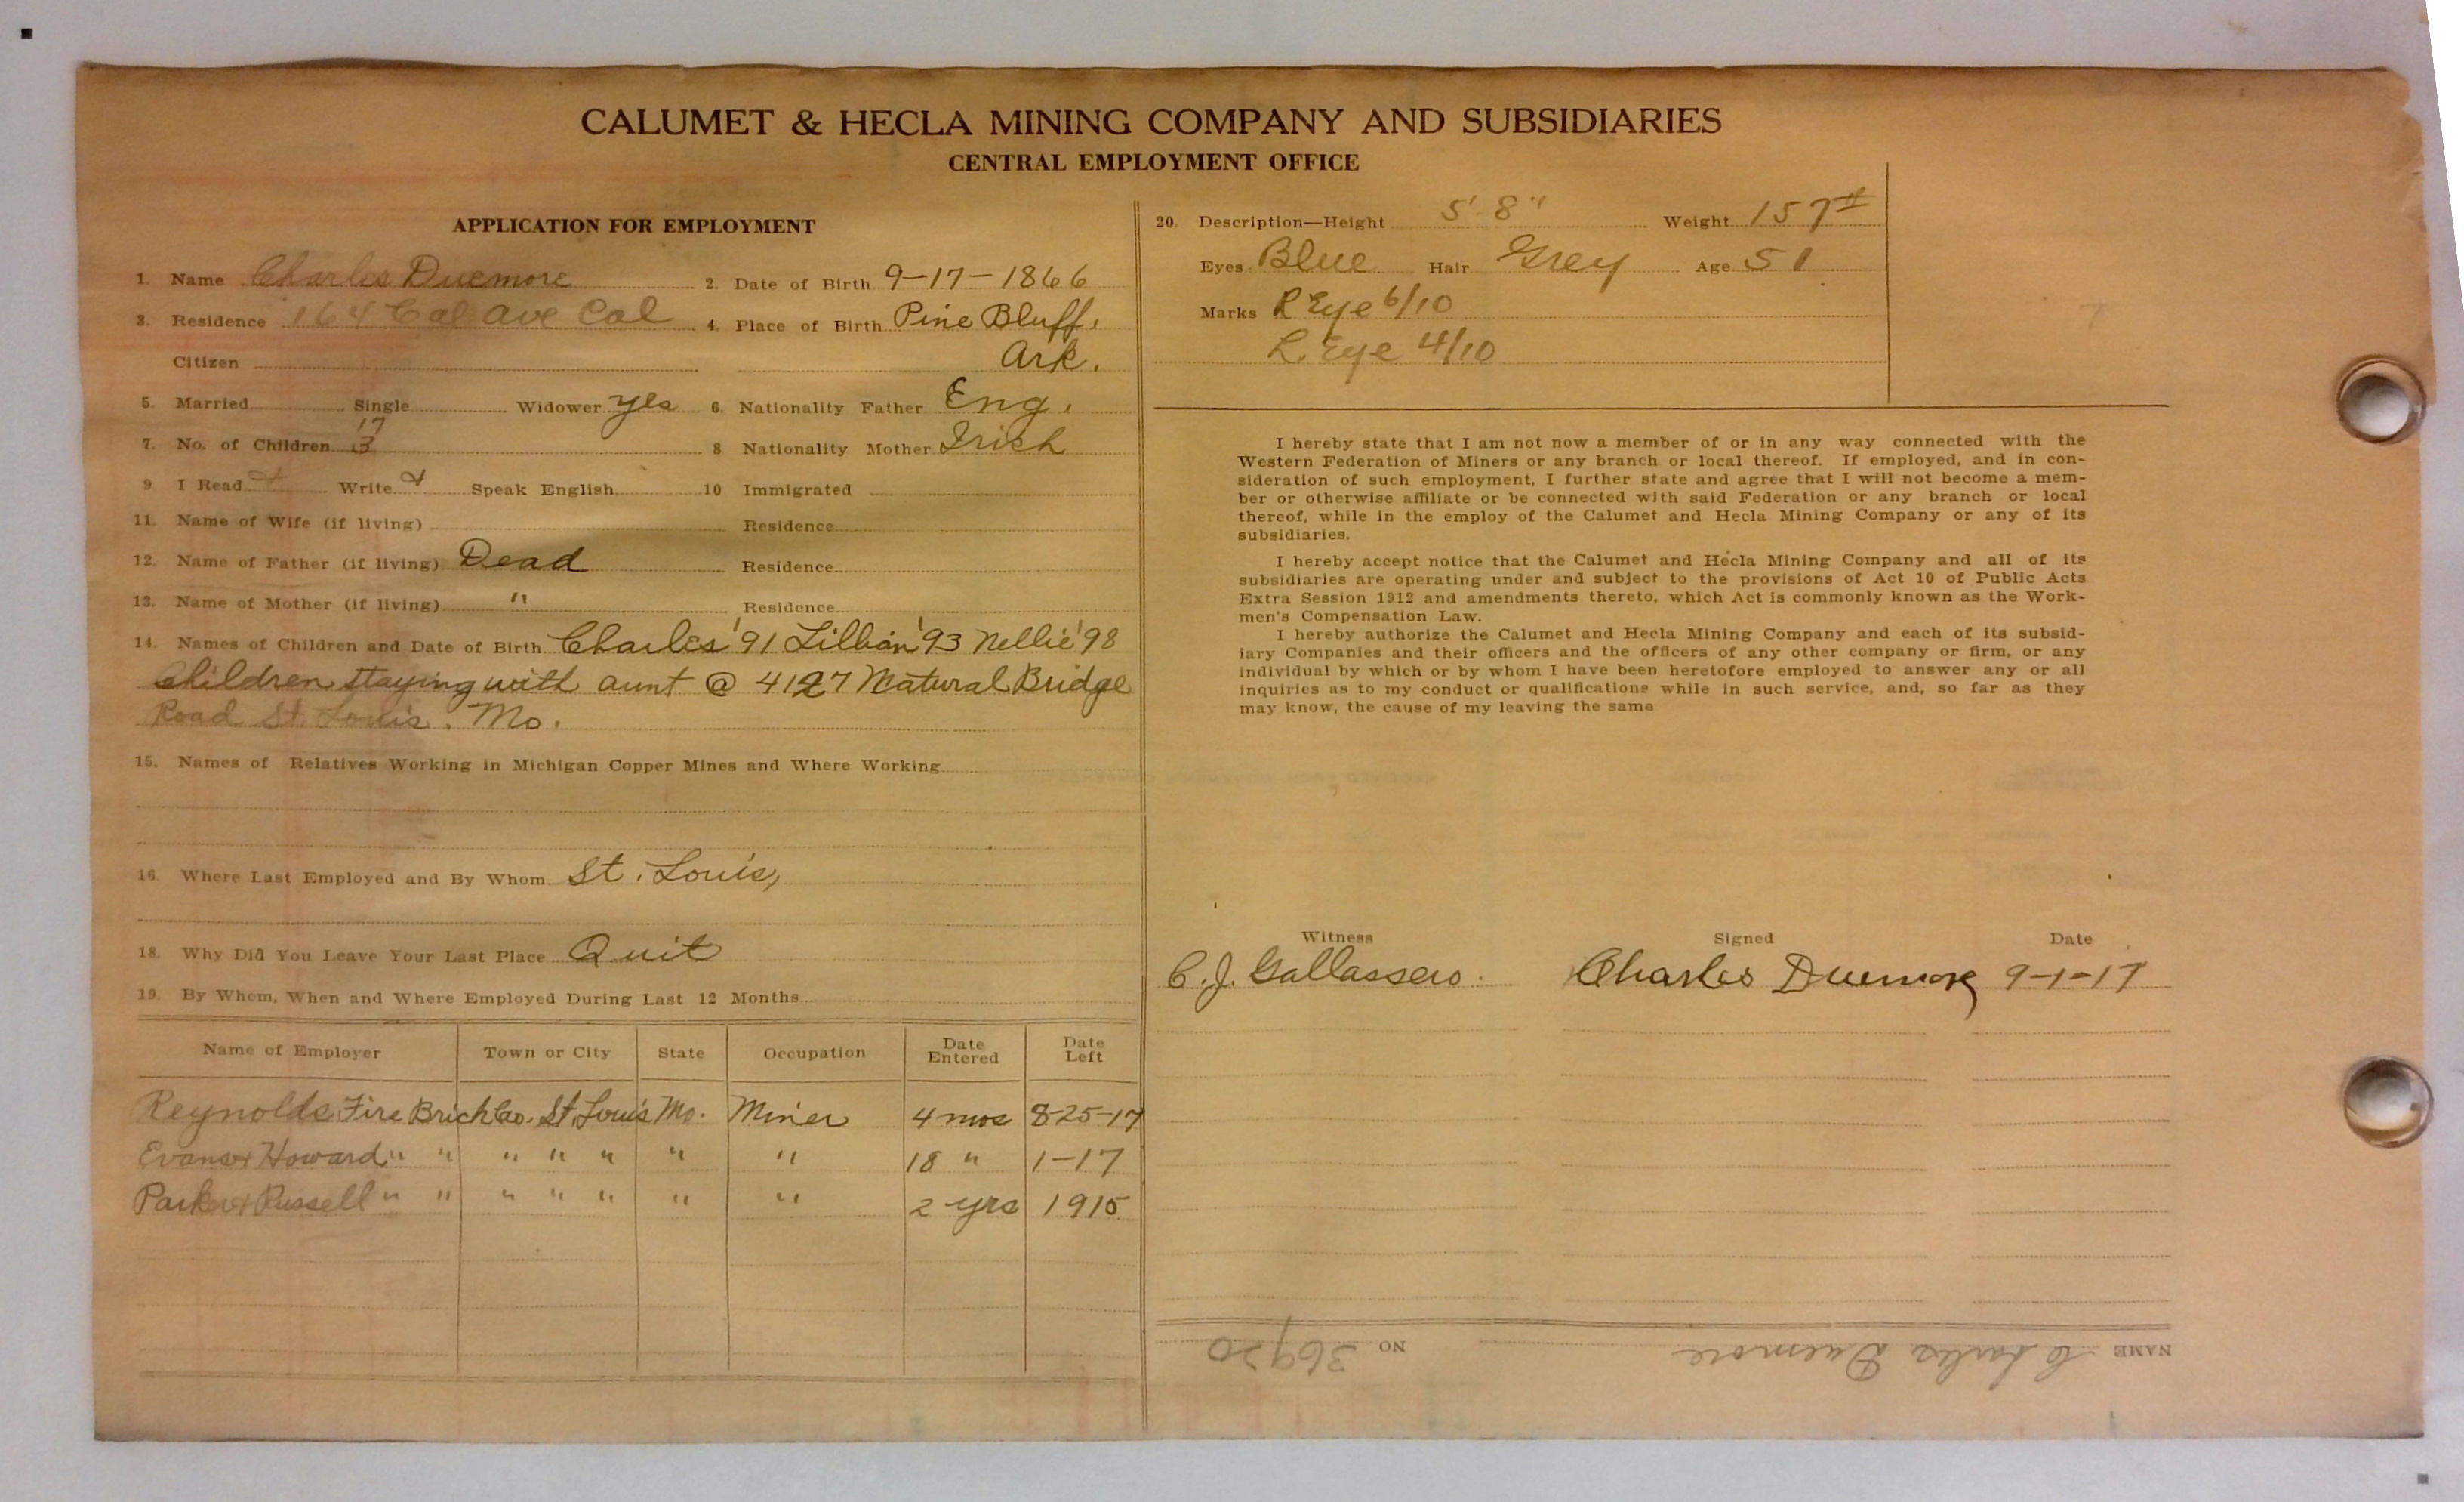 CALUMET & HECLA MINING COMPANY AND SUBSIDIARIES
CENTRAL EMPLOYMENT OFFICE
APPLICATION FOR EMPLOYMENT
1. Name Charles Duemore 2. Date of Birth 9-17-1866
3. Residence 164 Cal Ave Cal 4. Place of Birth Pine Bluff,
Citizen Ark.
5. Married Single Widower yes 6. Nationality Father Eng.
17
7. No. of Children 3 8 Nationality Mother Irish
9 I Read Write Speak English 10 Immigrated
11. Name of Wife (if living) Residence
12. Name of Father (if living) Dead Residence
13. Name of Mother (if living) " Residence
14. Names of Children and Date of Birth Charles '91 Lillian '93 Nellie '98
Children staying with aunt @ 4127 Natural Bridge
Road St. Louis. Mo.
15. Names of Relatives Working in Michigan Copper Mines and Where Working
16. Where Last Employed and By Whom St. Louis,
18. Why Did You Leave Your Last Place Quit
19. By Whom, When and Where Employed During Last 12 Months
Name of Employer Town or City State Occupation Date Entered Date Left
Reynolds Fire Brick Co. St. Louis Mo. Miner 4 mos 8-25-17
Evans + Howard " " " " " " " 18 " 1-17
Parker + Russell " " " " " " " 2 yrs 1915
20. Description—Height 5'-8" Weight 157#
Eyes Blue Hair Grey Age 51
Marks R Eye 6/10
L. Eye 4/10
I hereby state that I am not now a member of or in any way connected with the
Western Federation of Miners or any branch or local thereof. If employed, and in con-
sideration of such employment, I further state and agree that I will not become a mem-
ber or otherwise affiliate or be connected with said Federation or any branch or local
thereof, while in the employ of the Calumet and Hecla Mining Company or any of its
subsidiaries.
I hereby accept notice that the Calumet and Hecla Mining Company and all of its
subsidiaries are operating under and subject to the provisions of Act 10 of Public Acts
Extra Session 1912 and amendments thereto, which Act is commonly known as the Work-
men's Compensation Law.
I hereby authorize the Calumet and Hecla Mining Company and each of its subsid-
iary Companies and their officers and the officers of any other company or firm, or any
individual by which or by whom I have been heretofore employed to answer any or all
inquiries as to my conduct or qualifications while in such service, and, so far as they
may know, the cause of my leaving the same
Witness Signed Date
C. J. Gallassero. Charles Duemore 9-1-17
NAME Charles Duemore NO 36920